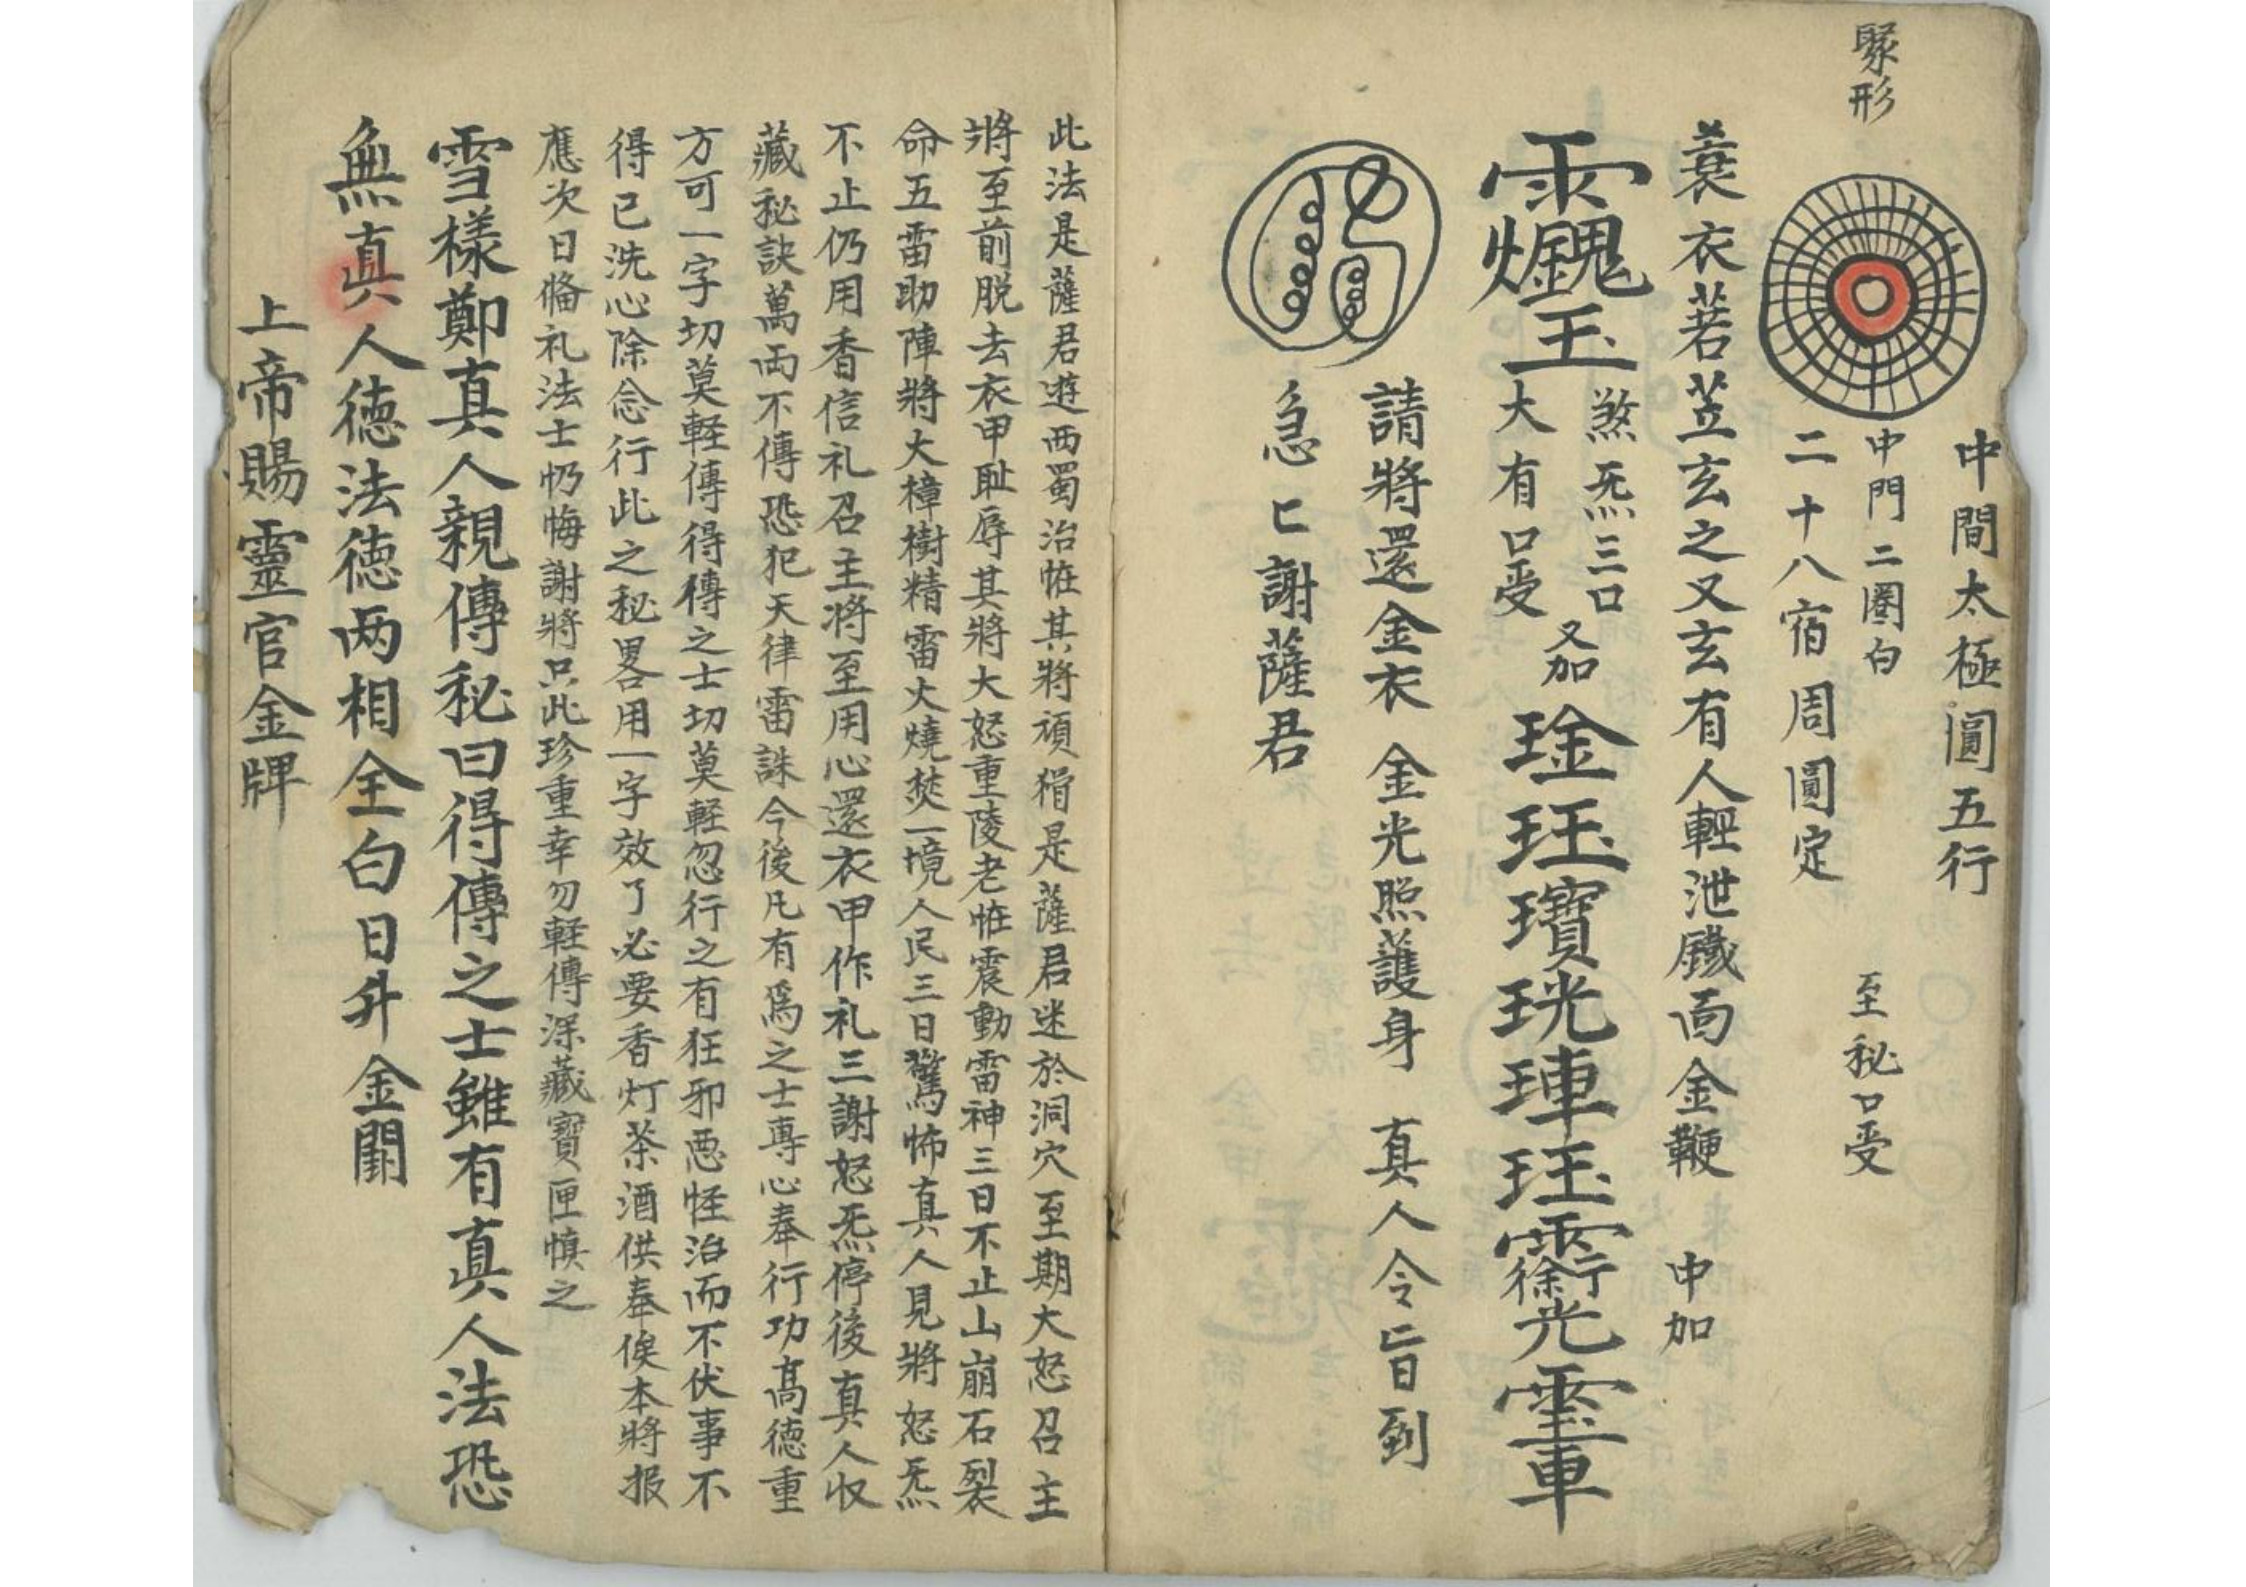 聚形
中間太極圓五行
中門二圈白
至秘口受
二十八宿周圓定
蓑衣箬笠玄之又玄有人輕泄鐵面金鞭
中加
煞炁三口
大有口受
又加
請將還金衣 金光照護身 真人令旨到
急匕謝薩君
此法是薩君遊西蜀治恠其將頑猾是薩君迷於洞穴至期大怒召主
將至前脱去衣甲耻辱其將大怒重陵老恠震動雷神三日不止山崩石裂
命五雷助陣將大樟樹精雷火燒焚一境人民三日驚怖真人見將怒炁
不止仍用香信礼召主将至用心還衣甲作礼三謝怒炁停後真人収
藏秘訣萬両不傳恐犯天律雷誅今後凡有爲之士專心奉行功高德重
方可一字切莫軽傳得傳之士切莫軽忽行之有狂邪悪怪治而不伏事不
得已洗心除念行此之秘畧用一字效了必要香灯茶酒供奉俟本將报
應次日俻礼法士忉悔謝將只此珍重幸勿軽傳深藏寳匣慎之
雪樣鄭真人親傳秘曰得傳之士雖有真人法恐
無真人德法德两相全白日升金闕
上帝賜靈官金牌